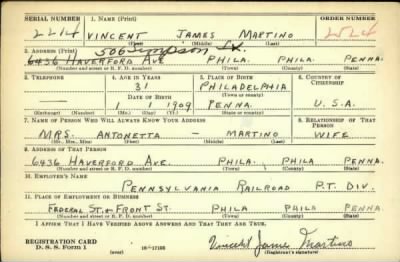 SERIAL NUMBER 1. NAME (Print) ORDER NUMBER
2214 VINCENT JAMES MARTINO
(First) (Middle) (Last)
506 Simpson St.
2. ADDRESS (Print)
6436 HAVERFORD AVE PHILA. PHILA. PENNA.
(Number and street or R. F. D. number) (Town) (County) (State)
3. TELEPHONE 4. AGE IN YEARS 5. PLACE OF BIRTH 6. COUNTRY OF CITIZENSHIP
31 PHILADELPHIA
DATE OF BIRTH (Town or county)
1 1 1909 PENNA. U.S.A.
(Mo.) (Day) (Yr.) (State or country)
7. NAME OF PERSON WHO WILL ALWAYS KNOW YOUR ADDRESS 8. RELATIONSHIP OF THAT PERSON
MRS. ANTONETTA — MARTINO WIFE
(Mr., Mrs., Miss) (First) (Middle) (Last)
9. ADDRESS OF THAT PERSON
6436 HAVERFORD AVE. PHILA. PHILA PENNA.
(Number and street or R. F. D. number) (Town) (County) (State)
10. EMPLOYER'S NAME
PENNSYLVANIA RAILROAD P.T. DIV.
11. PLACE OF EMPLOYMENT OR BUSINESS
FEDERAL ST. & FRONT ST. PHILA PHILA PENNA.
(Number and street or R. F. D. number) (Town) (County) (State)
I AFFIRM THAT I HAVE VERIFIED ABOVE ANSWERS AND THAT THEY ARE TRUE.
REGISTRATION CARD
D. S. S. Form 1 (over) 16—17105 Vincent James Martino
(Registrant's signature)